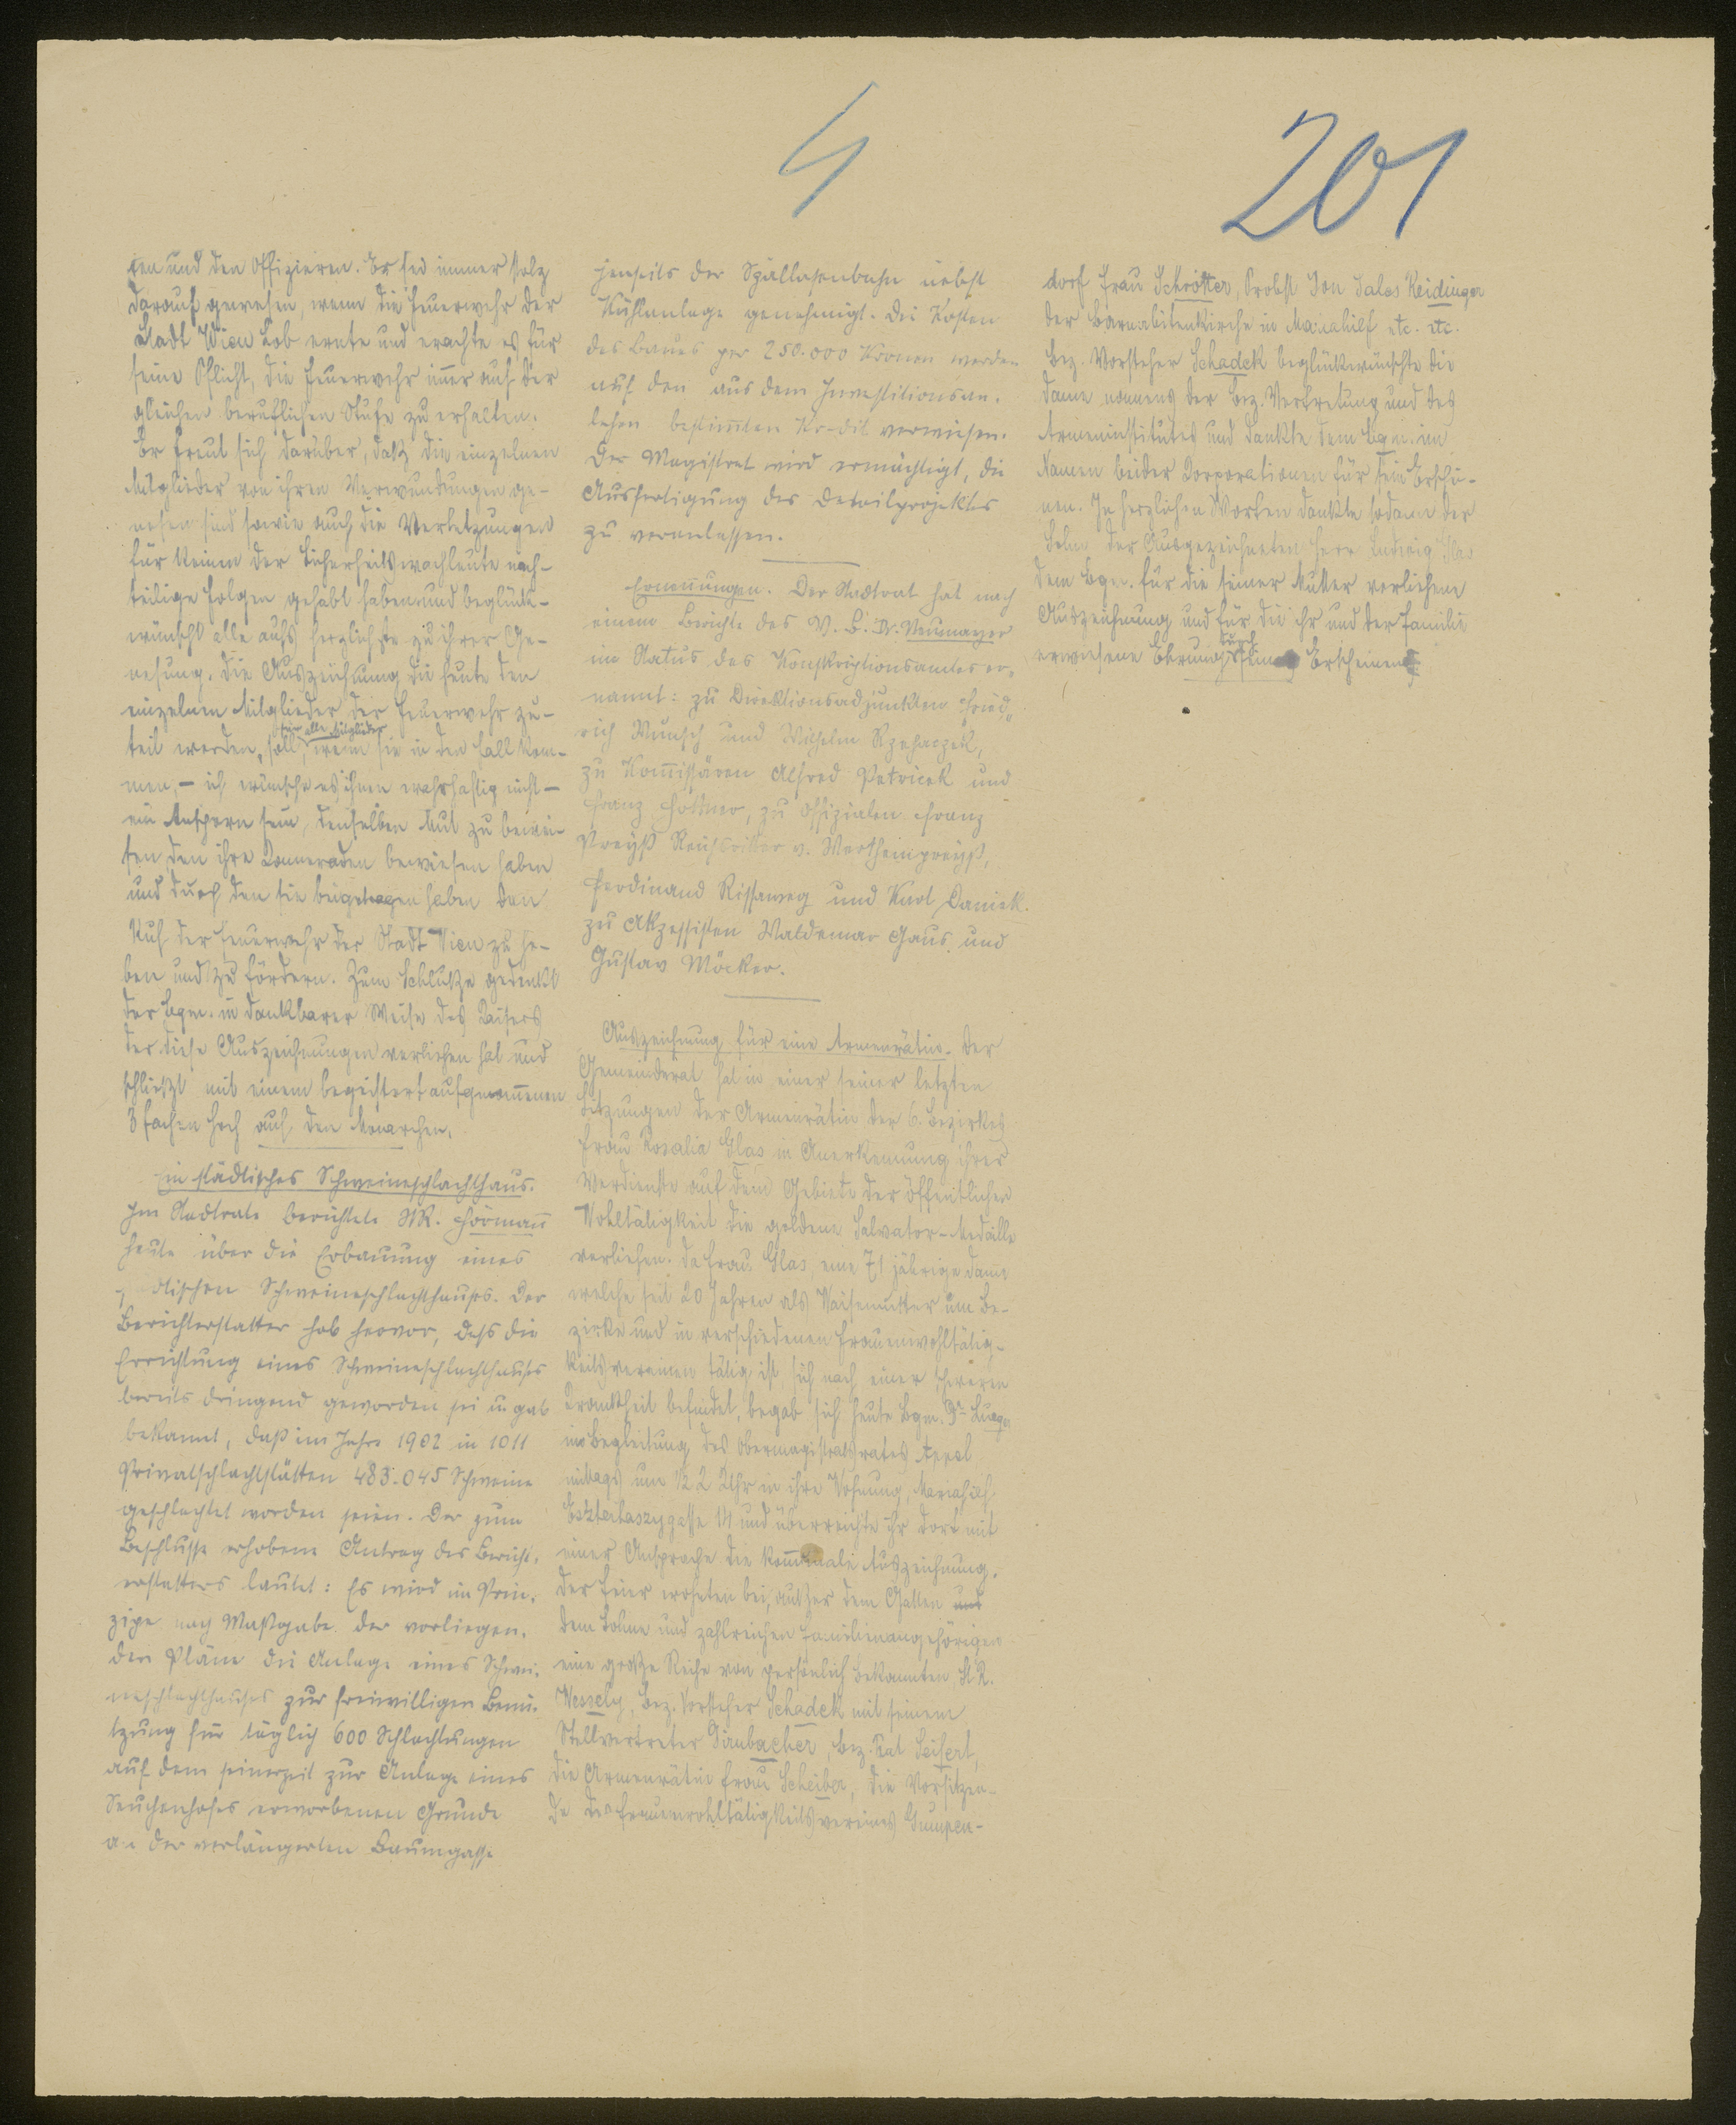 4
201
ten und den Offizieren. Er sei immer stolz
darauf gewesen, wenn die Feuerwehr der
Stadt Wien Lob ernte und erachte es für
seine Pflicht, die Feuerwehr immer auf der
gleichen beruflichen Stufe zu erhalten.
Er freut sich darüber, daß die einzelnen
Mitglieder von ihren Verwundungen ge-
nesen sind sowie auch die Verletzungen
für keinen der Sicherheitswachleute nach-
teilige Folgen gehabt haben und beglück-
wünscht alle aufs herzlichste zu ihrer Ge-
nesung. Die Auszeichnung die heute den
einzelnen Mitglieder der Feuerwehr zu-
für alle Mitglieder
teil werden, soll, wenn sie in den Fall kom-
men, – ich wünsche es ihnen wahrhaftig nicht –
ein Ansporn sein, denselben Mut zu bewei-
sen den ihre Kameraden bewiesen haben
und durch den sie beigetragen haben den
Ruf der Feuerwehr der Stadt Wien zu he-
ben und zu fördern. Zum Schluße gedenkt
der Bgm. in dankbarer Weise des Kaisers
der diese Auszeichnungen verliehen hat und
schließt mit einem begeistert aufgenommenen
3 fachen Hoch auf den Monarchen.
Ein städtisches Schweineschlachthaus.
Im Stadtrate berichtete StR. Hörmann
heute über die Erbauung eines
städtischen Schweineschlachthauses. Der
Berichterstatter hob hervor, dass die
Errichtung eines Schweineschlachthauses
bereits dringend geworden sei u gab
bekannt, daß im Jahre 1902 in 1011
Privatschlachtstätten 483.045 Schweine
geschlachtet worden seien. Der zum
Beschlusse erhobene Antrag des Bericht-
erstatters lautet: Es wird im Prin-
zipe nach Maßgabe der vorliegen-
den Pläne die Anlage eines Schwei-
neschlachthauses zur freiwilligen Benü-
tzung für täglich 600 Schlachtungen
auf dem seinerzeit zur Anlage eines
Seuchenhofes erworbenen Grunde
an der verlängerten Baumgasse
jenseits der Schlachthausbahn nebst
Kühlanlage genehmigt. Die Kosten
des Baues per 250.000 Kronen werden
auf den aus dem Investitionsan-
lehen bestimmten Kredit verwiesen.
Der Magistrat wird ermächtigt, die
Ausfertigung des Detailprojektes
zu veranlassen.
Ernennungen. Der Stadtrat hat nach
einem Berichte des V. B. Dr. Neumayer
im Status des Konskriptionsamtes er-
nannt: zu Direktionsadjunkten Fried-
rich Wunsch und Wilhelm Rzehaczek,
zu Kommissären Alfred Petricek und
Franz Hottner, zu Offizialen Franz
Preyß Reichsritter v. Werthenpreyß,
Ferdinand Rissaweg und Karl Daniek.
zu Akzessisten Waldemar Gaus und
Gustav Möcker.
Auszeichnung für eine Armenrätin. Der
Gemeinderat hat in einer seiner letzten
Sitzungen der Armenrätin des 6. Bezirkes
Frau Rosalia Glas in Anerkennung ihrer
Verdienste auf dem Gebiete der öffentlichen
Wohltätigkeit die goldene Salvator-Medaille
verliehen. Da Frau Glas, eine 71 jährige Dame
welche seit 20 Jahren als Waisenmutter im Be-
zirke und in verschiedenen Frauenwohltätig-
keitsvereinen tätig ist sich nach einer schweren
Krankheit befindet, begab sich heute Bgm. Dr. Lueger
in Begleitung des Obermagistratsrates Appel
mittags um ½ 2 Uhr in ihre Wohnung, Mariahilf
Eszterhaszygasse 14 und überreichte ihr dort mit
einer Ansprache die kommunale Auszeichnung.
Der Feier wohnten bei, außer dem Gatten und
dem Sohne und zahlreichen Familienangehörigen
eine große Reihe von persönlich Bekannten StR.
Wessely, Bez. Vorsteher Schadek mit seinem
Stellvertreter Dirnbacher, Bez. Rat Seifert,
die Armenrätin Frau Scheiber, die Vorsitzen-
de des Frauenwohltätigkeitsvereines Gumpen-
dorf Frau Schrötter, Probst Don Sales Reidinger
der Barnabitenkirche in Mariahilf etc. etc.
Bez. Vorsteher Schadek beglückwünschte die
Dame namens der Bez. Vertretung und des
Armeninstitutes und dankte dem Bgm. im
Namen beider Korporationen für sein Erschei-
nen. In herzlichen Worten dankte sodann der
Sohn der Ausgezeichneten Herr Ludwig Glas
dem Bgm. für die seiner Mutter verliehene
Auszeichnung und für die ihr und der Familie
durch
erwiesene Ehrung sein Erscheinen.